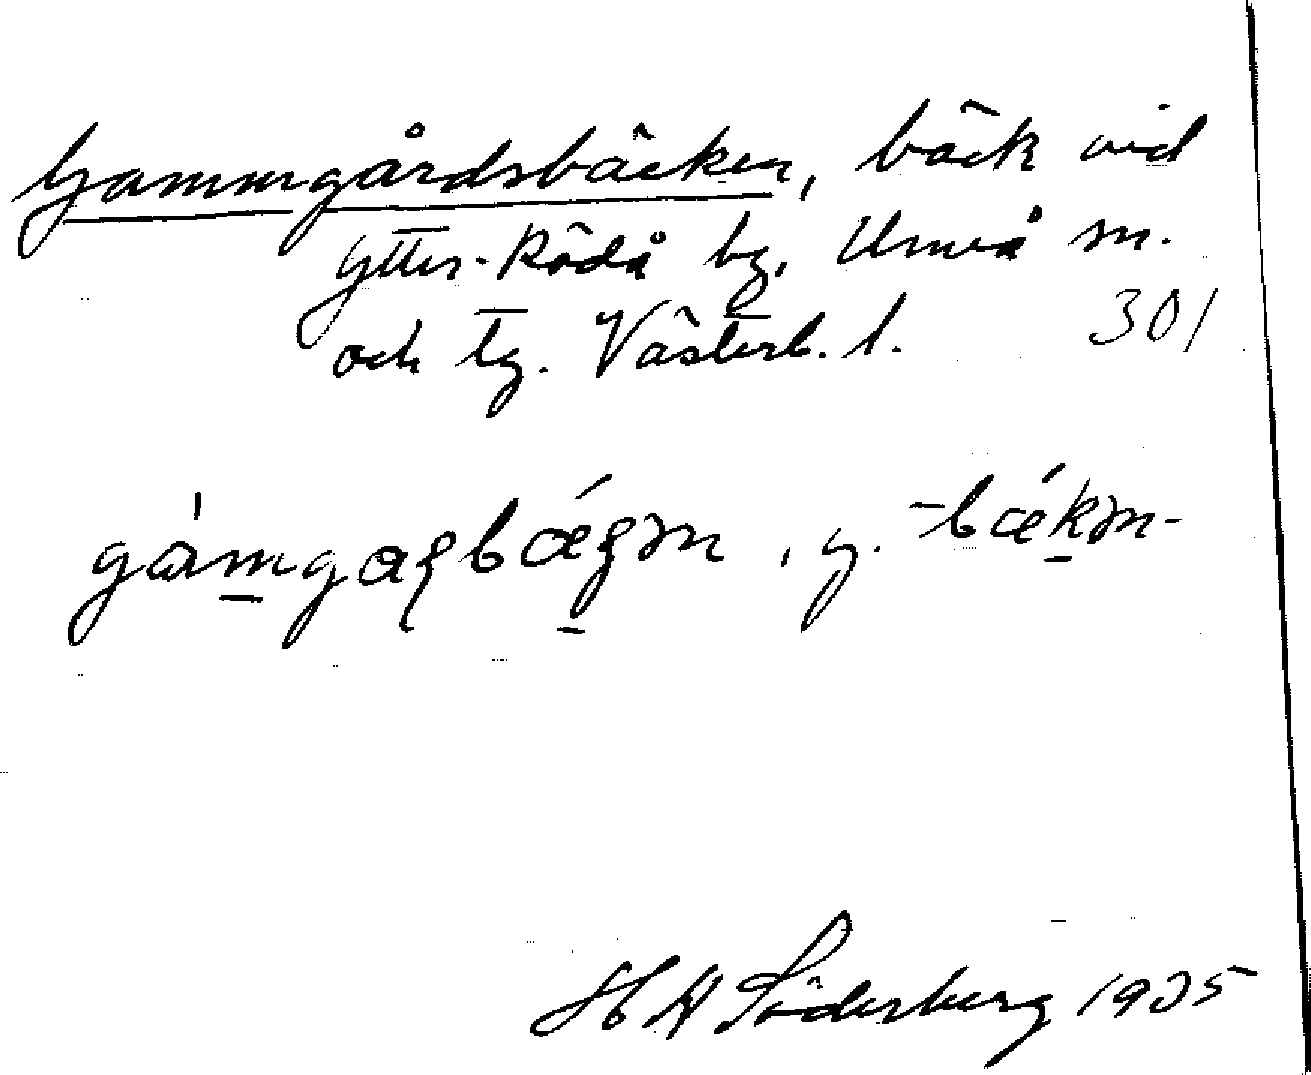 Gammgårdsbäcken, bäck vid
Ytter-Rödå by, Umeå sn.
och tg. Västerb. l. 301
gàmgaʂbǽʂən, y. -bǽkən-
H W Söderberg 1935